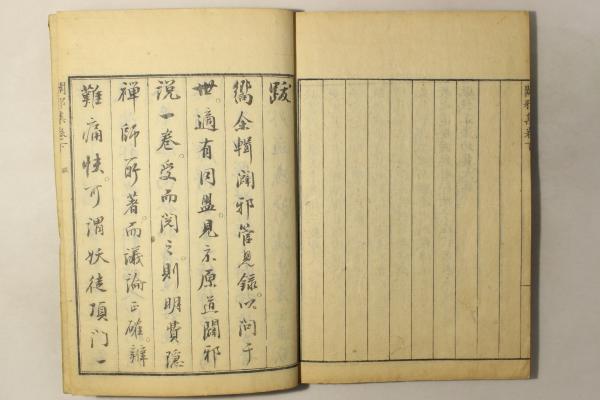 闢邪集卷下
跋
嚮余輯闢邪管見録。以問于
世。適有同盟見示原道闢邪
説一巻。受而閲之則明費隠
禅師所著。而議論正確。辨
難痛快可謂妖徒頂門一
闢邪集卷下